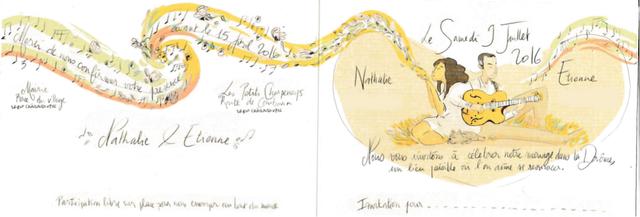 Merci de nous confirmer votre présence
avant le 15 Avril 2016
Mairie
Place du village
Les Petits Champs
Route de
Nathalie & Etienne
Participation libre sur place pour nous envoyer au bout du monde
Le Samedi 9 Juillet
2016
Nathalie
Etienne
Nous vous invitons à célébrer notre mariage dans la Drôme,
un lieu paisible où l'on aime se ressourcer.
Invitation pour